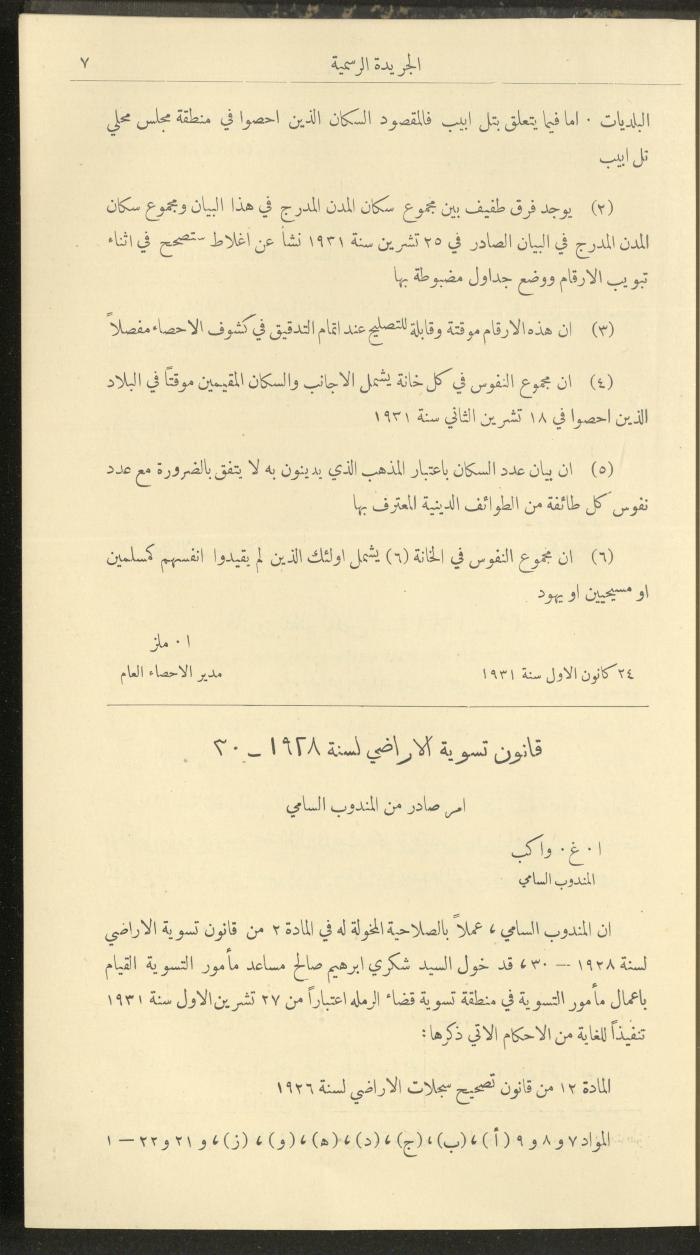 الجريدة الرسمية ٧
البلديات ٠ اما فيما يتعلق بتل ابيب فالمقصود السكان الذين احصوا في منطقة مجلس محلي
تل ابيب
(٢) يوجد فرق طفيف بين مجموع سكان المدن المدرج في هذا البيان ومجموع سكان
المدن المدرج في البيان الصادر في ٢٥ تشرين سنة ١٩٣١ نشأ عن اغلاط ستصحح في اثناء
تبويب الارقام ووضع جداول مضبوطة بها
(٣) ان هذه الارقام موقتة وقابلة للتصليح عند اتمام التدقيق في كشوف الاحصاء مفصلاً
(٤) ان مجموع النفوس في كل خانة يشمل الاجانب والسكان المقيمين موقتًا في البلاد
الذين احصوا في ١٨ تشرين الثاني سنة ١٩٣١
(٥) ان بيان عدد السكان باعتبار المذهب الذي يدينون به لا يتفق بالضرورة مع عدد
نفوس كل طائفة من الطوائف الدينية المعترف بها
(٦) ان مجموع النفوس في الخانة (٦) يشمل اولئك الذين لم يقيدوا انفسهم كمسلمين
او مسيحيين او يهود
ا٠ ملز
٢٤ كانون الاول سنة ١٩٣١ مدير الاحصاء العام
قانون تسوية الاراضي لسنة ١٩٢٨ ــ ٣٠
امر صادر من المندوب السامي
ا٠ غ٠ واكب
المندوب السامي
ان المندوب السامي ، عملاً بالصلاحية المخولة له في المادة ٢ من قانون تسوية الاراضي
لسنة ١٩٢٨ — ٣٠ ، قد خول السيد شكري ابرهيم صالح مساعد مأمور التسوية القيام
باعمال مأمور التسوية في منطقة تسوية قضاء الرمله اعتباراً من ٢٧ تشرين الاول سنة ١٩٣١
تنفيذاً للغاية من الاحكام الاتي ذكرها :
المادة ١٢ من قانون تصحيح سجلات الاراضي لسنة ١٩٢٦
المواد ٧ و ٨ و ٩ (أ) ، (ب) ، (ج) ، (د) ، (ه) ، (و) ، (ز) ، و ٢١ و ٢٢ — ١